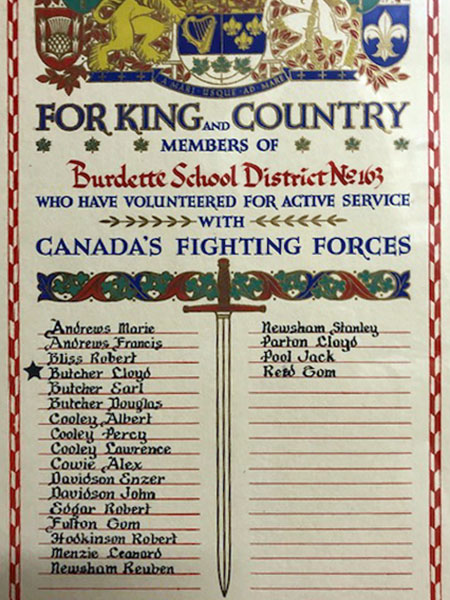 A MARI USQUE AD MARE
FOR KING AND COUNTRY
MEMBERS OF
Burdette School District No 163
WHO HAVE VOLUNTEERED FOR ACTIVE SERVICE
WITH
CANADA'S FIGHTING FORCES
Andrews Marie
Andrews Francis
Bliss Robert
Butcher Lloyd
Butcher Earl
Butcher Douglas
Cooley Albert
Cooley Percy
Cooley Lawrence
Cowie Alex
Davidson Enzer
Davidson John
Edgar Robert
Fulton Tom
Hodkinson Robert
Menzie Leonard
Newsham Reuben
Newsham Stanley
Parton Lloyd
Pool Jack
Reid Tom